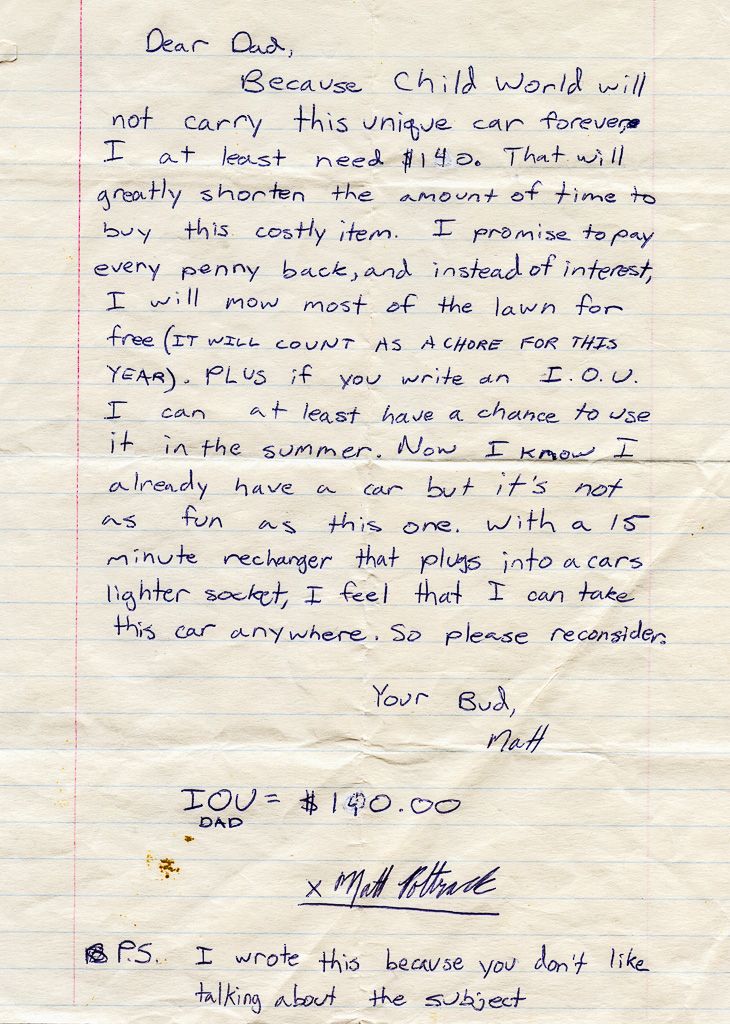 Dear Dad,
Because Child World will
not carry this unique car forever.
I at least need $140. That will
greatly shorten the amount of time to
buy this costly item. I promise to pay
every penny back, and instead of interest,
I will mow most of the lawn for
free (IT WILL COUNT AS A CHORE FOR THIS
YEAR). PLUS if you write an I.O.U.
I can at least have a chance to use
it in the summer. Now I know I
already have a car but it's not
as fun as this one. With a 15
minute recharger that plugs into a cars
lighter socket, I feel that I can take
this car anywhere. So please reconsider.
Your Bud,
Matt
IOU = $140.00
DAD
x Matt
P.S. I wrote this because you don't like
talking about the subject